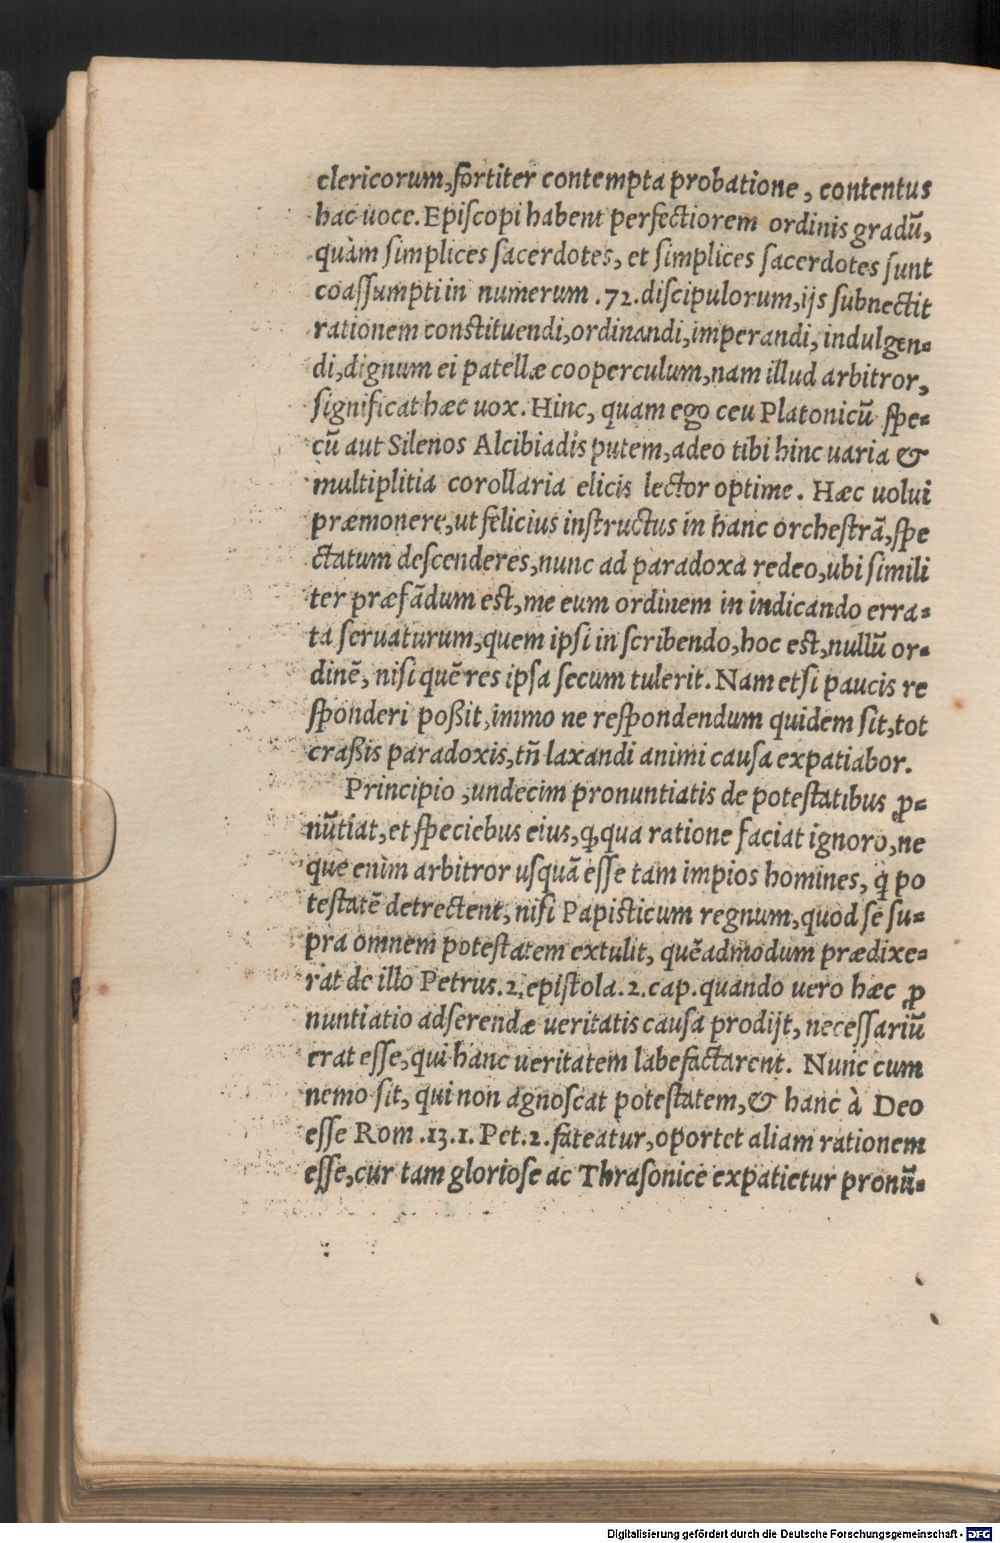 clericorum, fortiter contempta probatione, contentus
hac uoce. Episcopi habent perfectiorem ordinis gradū,
quàm simplices sacerdotes, et simplices sacerdotes sunt
coassumpti in numerum .72. discipulorum, ijs subnectit
rationem constituendi, ordinandi, imperandi, indulgen-
di, dignum ei patellæ cooperculum, nam illud arbitror,
significat hæc uox. Hinc, quam ego ceu Platonicū spe-
cū aut Silenos Alcibiadis putem, adeo tibi hinc uaria &
multiplitia corollaria elicis lector optime. Hæc uolui
præmonere, ut felicius instructus in hanc orchestrā, spe
ctatum descenderes, nunc ad paradoxa redeo, ubi simili
ter præfādum est, me eum ordinem in indicando erra-
ta seruaturum, quem ipsi in scribendo, hoc est, nullū or-
dinē, nisi quē res ipsa secum tulerit. Nam etsi paucis re
sponderi poßit, immo ne respondendum quidem sit, tot
craßis paradoxis, tñ laxandi animi causa expatiabor.
Principio, undecim pronuntiatis de potestatibus ꝓ-
nūtiat, et speciebus eius, ꝙ, qua ratione faciat ignoro, ne
que enim arbitror usquā esse tam impios homines, q̇ po
testatē detrectent, nisi Papisticum regnum, quod se su-
pra omnem potestatem extulit, quēadmodum prædixe-
rat de illo Petrus .2. epistola .2. cap. quando uero hæc ꝓ
nuntiatio adserendæ ueritatis causa prodijt, necessariū
erat esse, qui hanc ueritatem labefactarent. Nunc cum
nemo sit, qui non agnoscat potestatem, & hanc à Deo
esse Rom .13. 1. Pet. 2. fateatur, oportet aliam rationem
esse, cur tam gloriose ac Thrasonice expatietur pronū-
Digitalisierung gefördert durch die Deutsche Forschungsgemeinschaft - DFG